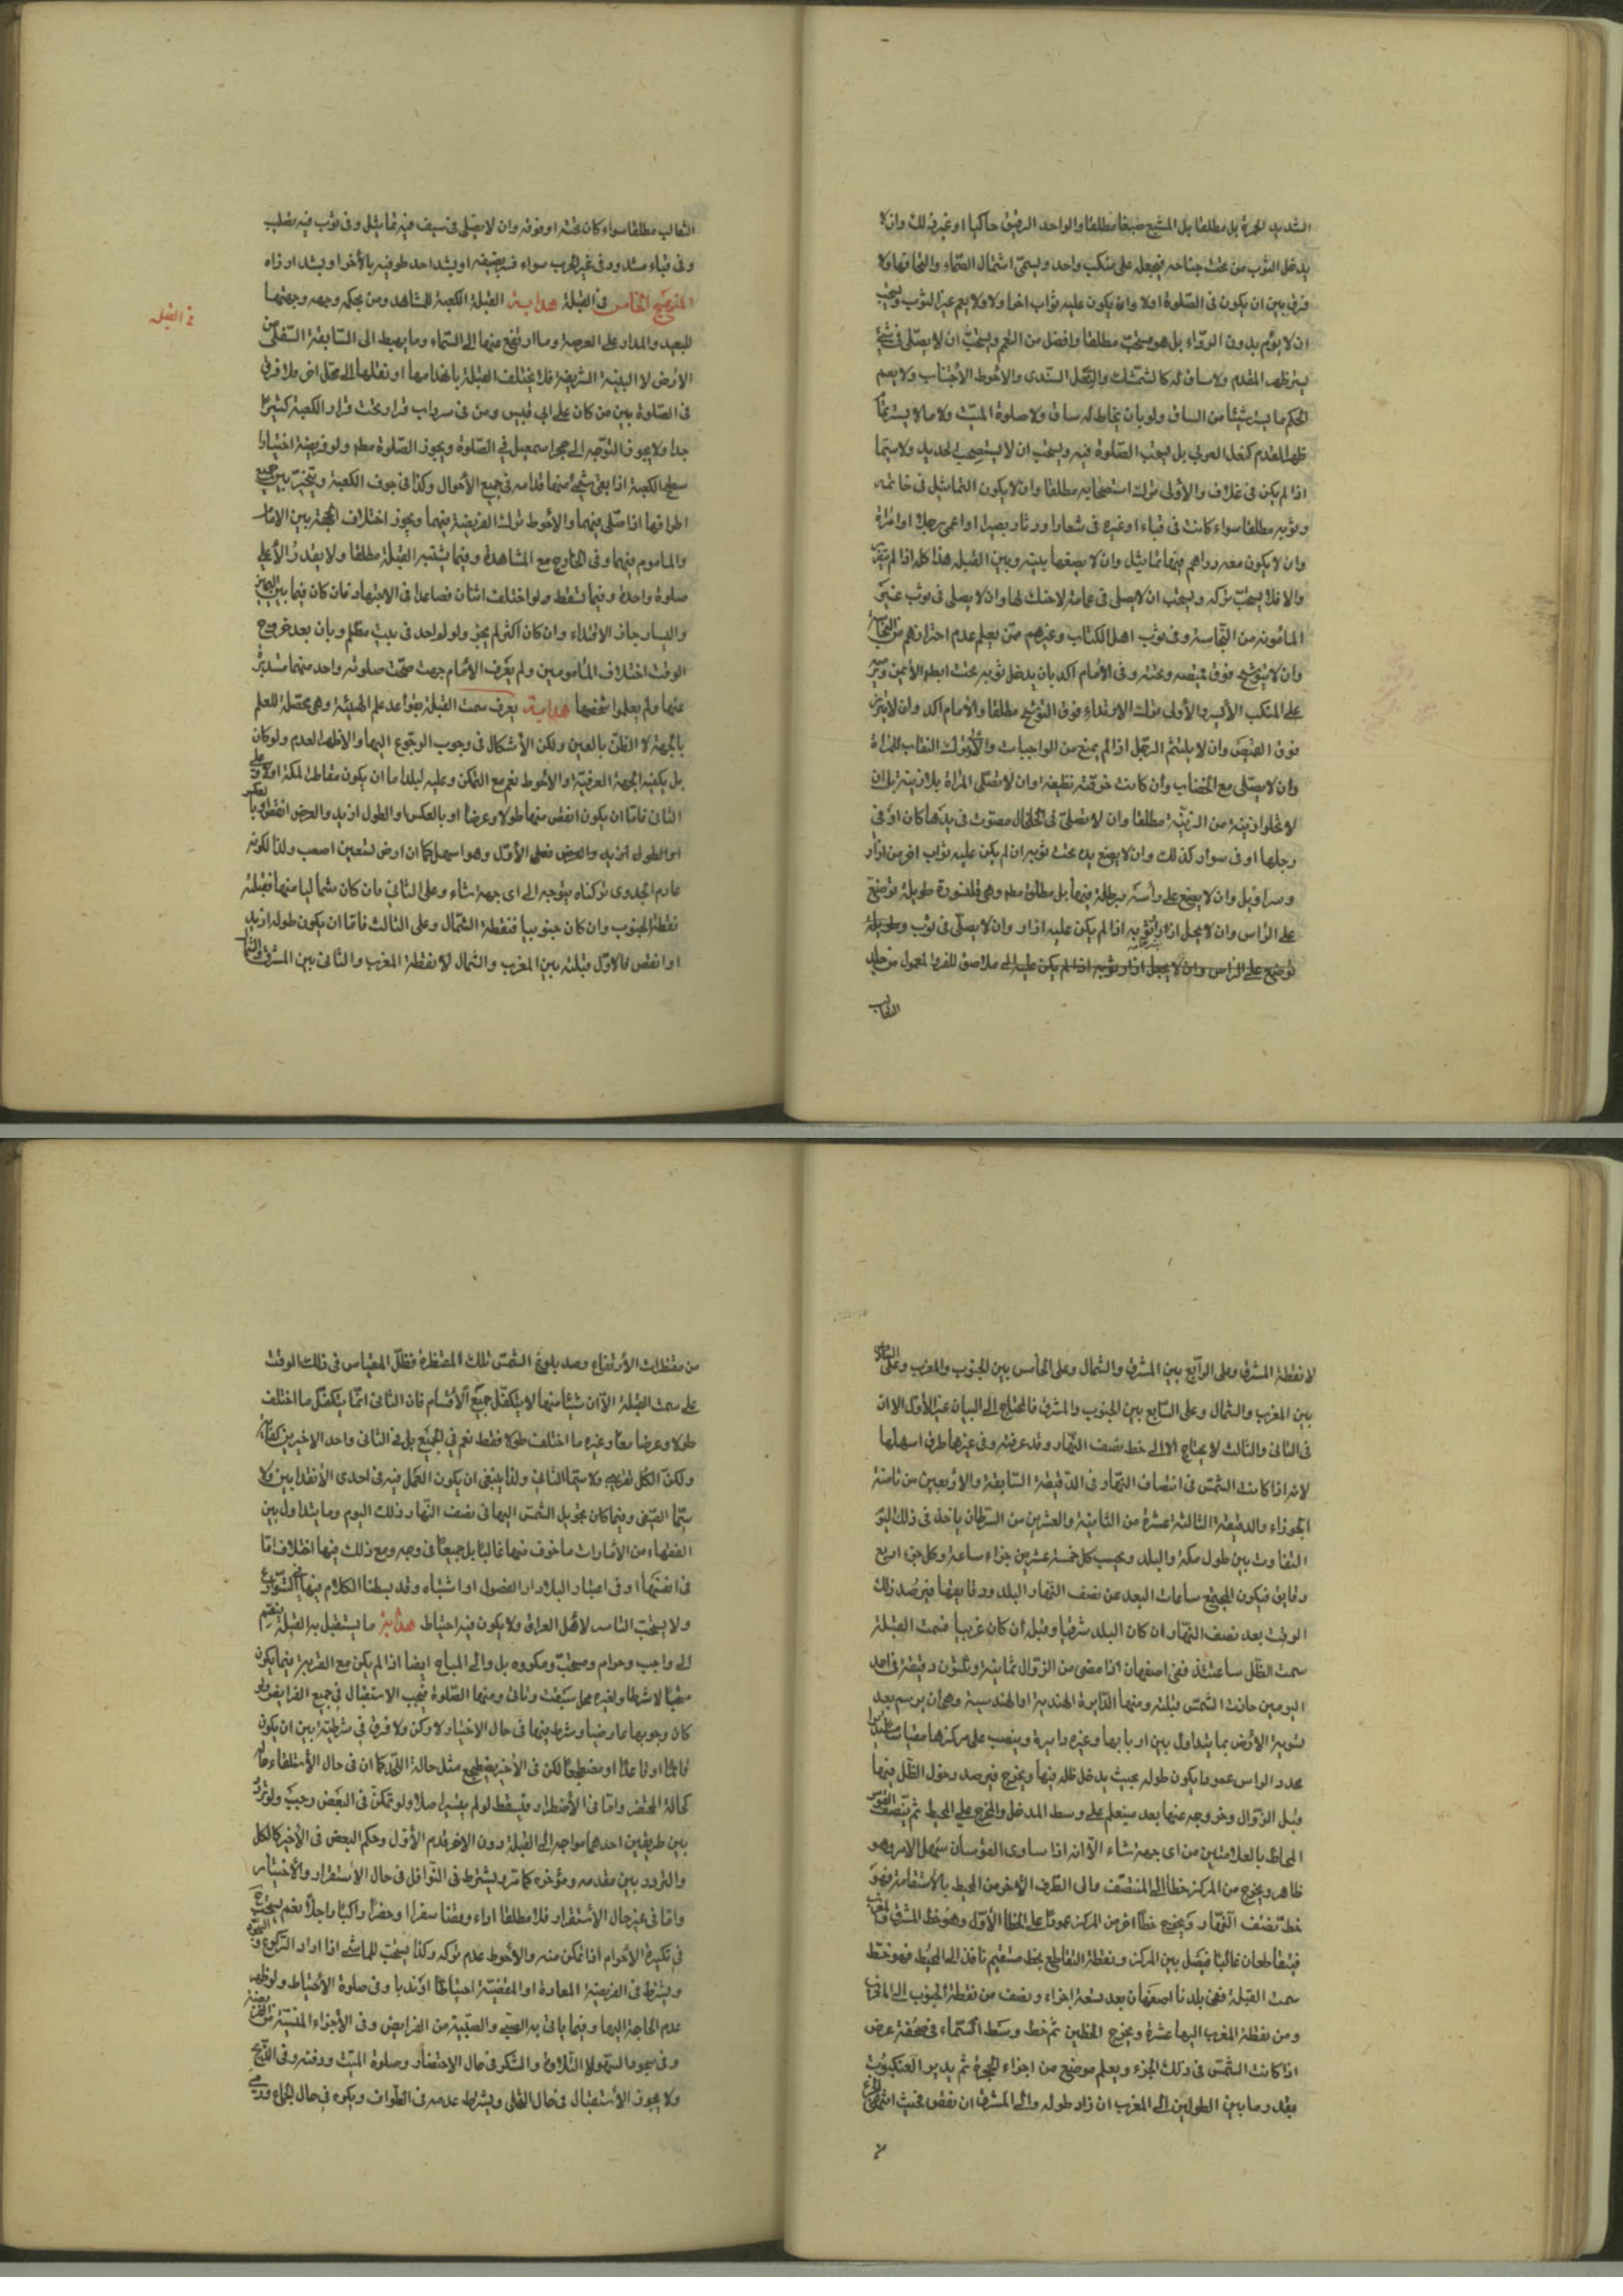 الشديد الحمرة بل مطلقا بل المشبع صبغا مطلقا والواحد الرقيق حاكيا او غيره ذلك وان لا
يدخل الثوب من تحت جناحه فيجعله على منكب واحد ويسمى اشتمال الصماء والتحافها ولا
فرق بين ان يكون فى الصلوة اولا وان يكون عليه ثواب اخر اولا ولا يعم غير الثوب ويستحب
ان لا يؤم بدون الرداء بل هو مستحب مطلقا وافضل من التعمم ويستحب ان لا يصلى فى شئ
يستر ظهر المقدم ولا ساق له كالشمشك والنعل السندى والاحوط الاجتناب ولا يعم
الحكم ما يستر شيئا من الساق ولو بان يخاط له ساق ولا صلوة الميت ولا ما لا يستر تمام
ظهر المقدم كنعل العربى بل يستحب الصلوة فيه ويستحب ان لا يستصحب الحديد ولا سيما
اذا لم يكن فى غلاف والاولى ترك استصحابه مطلقا وان لا يكون التماثيل فى خاتمه
وثوبه مطلقا سواء كانت فى قباء او غيره فى شعار او دثار بصيرا او اعمى رجلا او امراة
وان لا يكون معه دراهم فيها تماثيل وان لا يضعها بينه وبين القبله هذا كله اذا لم
والا فلا يستحب تركه ويستحب ان لا يصلى فى عمامة لا حنك لها وان لا يصلى فى ثوب غير
المامونه من النجاسة وفى ثوب اهل الكتاب وغيرهم ممن يعلم عدم احترازهم من النجاسة
وان لا يتوشح فوق قميصه وتحته وفى الامام اكد بان يدخل ثوبه تحت ابطه الايمن
على المنكب الايسر والاولى ترك الارتداء فوق التوشح مطلقا والامام اكد وان لا يتزر
فوق القميص وان لا يلتثم الرجل اذا لم يمنع من الواجبات والاولى ترك النقاب للمراة
وان لا يصلى مع الخضاب وان كانت خرقته نظيفة وان لا تصلى المراة بلا زينة بل ان
لا تخلوا زينة من الزينة مطلقا وان لا تصلى فى الخلخال مصوت فى يدها كان او فى
رجلها او فى سوار كذلك وان لا يضع يده تحت ثوبه ان لم يكن عليه ثواب اخر من ازار
وسراويل وان لا يضع على راسه برطلة فيها بل مطلقا مطم وهى قلنسوة طويلة توضع
على الراس وان لا يحل ازار ثوبه اذا لم يكن عليه ازار وان لا يصلى فى ثوب
توضع على الراس وان لا يجعل ازار ثوبه اذا لم يكن عليه الى ملاصق للفرو المعمول من جلد
الثعالب
الثعالب مطلقا سواء كان تحته او فوقه وان لا يصلى فى سيف فيه تماثيل وفى ثوب فيه تصليب
وفى قباء مشدود فى غير الحرب سواء او يشد احد طرفيه بالاخر او يشد ازراره
المنهج الخامس فى القبلة هداية القبلة الكعبة للمشاهد ومن بحكمه وجهه وجهتها
فى القبله
للبعيد والمدار على العرصة وما ارتفع منها الى السماء وما يهبط الى السابعة السفلى من
الارض لا البنية الشريفة فلا يختلف القبلة بانهدامها او نقلها الى محل اخر ولا فرق
فى الصلوة بين من كان على ابى قبيس ومن فى سرداب قراره تحت قرار الكعبة كثيرا
جدا ولا يجوز التوجه الى حجر اسمعيل فى الصلوة ويجوز الصلوة مطم ولو فريضة اختيارا
سطح الكعبة اذا بقى شئ منها قدامه فى جميع الاحوال وكذا فى جوف الكعبة ويتخير بين جميع
اطرافها اذا صلى فيهما والاحوط ترك الفريضة فيهما ويجوز اختلاف الجهة بين الامام
والماموم فيهما وفى الخارج مع المشاهدة وفيما يشتبه القبلة مطلقا ولا يقدر الاعلى
صلوة واحدة وفيما تسقط ولو اختلف اثنان فصاعدا فى الاجتهاد فان كان فيما بين اليمين
واليسار جاز الاقتداء وان كان اكثر لم يجز ولو لواحد فى بيت مظلم وبان بعد خروج
الوقت اختلاف المامومين ولم يعرف الامام جهته صحت صلوته واحد منهما
عنها ولم يعلموا شخصها هداية يعرف سمت القبلة بقواعد علم الهيئة وهى محصلة للعلم
بالجهة لا الظن بالعين ولكن الاشكال فى وجوب الرجوع اليها والاظهر العدم ولو كان
بل يكفيه الجهة العرفية والاحوط نعم مع التمكن وعليه لبلد اما ان يكون مقاطر لمكة اولا وعلى
الثانى فاما ان يكون انقص منها طولا وعرضا او بالعكس او الطول ازيد والعرض انقص او بالعكس
او الطول ازيد والعرض فعلى الاول وهو اسهل كما ان ارض تسعين اصعب ولذا لكونه
عادم الجدوى تركناه يتوجه الى اى جهة شاء وعلى الثانى فان كان شماليا منها فقبلته
نقطة الجنوب وان كان جنوبيا فنقطة الشمال وعلى الثالث فاما ان يكون طوله ازيد
او انقص فالاول قبلته بين المغرب والشمال لا نقطة المغرب والثانى بين المشرق والشمال
لا نقطة المشرق وعلى الرابع بين المشرق والشمال وعلى الخامس بين الجنوب والمغرب وعلى السادس
بين المغرب والشمال وعلى السابع بين الجنوب والمشرق فالمحتاج الى البيان غير الاول الا ان
فى الثانى والثالث لا يحتاج الا الى خط نصف النهار وقد عرفته وفى غيرها طرق اسهلها
لانه اذا كانت الشمس فى انتصاف النهار فى الدقيقة السابعة والاربعين من ثامنة
الجوزاء والدقيقة الثالثة عشرة من الثامنة والعشرين من السرطان ياخذ فى ذلك اليوم
التفاوت بين طول مكة والبلد ويحسب كل خمسة عشر من جزاء ساعة وكل جزء اربع
دقايق فيكون المجتمع ساعات البعد عن نصف النهار البلد ودقايقها فيرصد ذلك
الوقت بعد نصف النهار ان كان البلد شرقيا وقبل ان كان غربيا فسمت القبلة
سمت الظل ساعتئذ ففى اصفهان اذا مضى من الزوال ثمانية وثلثون دقيقة فى احد
اليومين حاذت الشمس قبلته ومنها الدايرة الهندية او الهندسية وهى ان يرسم بعد
تسوية الارض بما يتداول بين اربابها وغيره دايرة وينصب على مركزها مقياسا
محدد الراس عمودا يكون طوله بحيث يدخل ظله فيها ويخرج فيرصد دخول الظل فيها
قبل الزوال وخروجه عنها بعد فيعلم على وسط المدخل والمخرج على المحيط ثم ينصف القوس
المحاط بالعلامتين من اى جهة شاء الا انه اذا ساوى القوسان سهل الامر وهو
ظاهر ويخرج من المركز خطا الى المنتصف والى الطرف الاخر من المحيط بالاستقامة فهو
خط نصف النهار ويخرج خطا اخر من المركز عمودا على الخط الاول وهو خط المشرق والمغرب
فيتقاطعان غالبا فيصل بين المركز ونقطة التقاطع بخط مستقيم نافذ الى المحيط فهو خط
سمت القبلة ففى بلدنا اصفهان بعد تسعة اجزاء ونصف من نقطة الجنوب الى
ومن نقطة المغرب اليها عشرة ويخرج الخطين ثم خط وسط السماء فى صحيفة عرض
اذا كانت الشمس فى ذلك الجزء ويعلم موضع من اجزاء الحجرة ثم يدير العنكبوت
بقدر ما بين الطولين الى المغرب ان زاد طوله والى المشرق ان نقص فحيث انتهى الجزء
من مقنطرات الارتفاع وصد بلوغ الشمس تلك المقنطرة فظل المقياس فى ذلك الوقت
على سمت القبلة الا ان شيئا منها لا يتكفل جميع الاقسام فان الثانى انما يتكفل ما اختلف
طولا وعرضا معا وغيره ما اختلف طولا فقط نعم فى الجميع بل فى الثانى واحد الاخيرين كفاية
ولكن الكل تقريبى ولا سيما الثانى ولذا ينبغى ان يكون العمل فيه فى احدى الانقلابين ولا
سيما الصيفى وفيما كان تحويل الشمس اليها فى نصف النهار ذلك اليوم وما يتداول بين
الفقهاء من الامارات ماخوذ منها غالبا بل جميعا فى وجه ومع ذلك فيها اختلاف اما
فى انفسها او فى اعتبار البلاد او الفصول او اشتباه وقد بسطنا الكلام فيها فى الشوارع
ولا يستحب التياسر لاهل العراق ولا يكون فيه احتياط هداية ما يستقبل به القبلة ينقسم
الى واجب وحرام ومستحب ومكروه بل والى المباح ايضا اذا لم يكن مع القربة فيما يكون
ومنها الصلوة فيجب الاستقبال فى جميع الفرايض ولو
كان وجوبها عارضيا وشرط فيها فى حال الاختيار لا ركن ولا فرق فى شرطيته بين ان يكون
قائما او قاعدا او مضطجعا لكن فى الاخير يضطجع مثل حالة اللحد كما ان فى حال الاستلقاء حاله
كحالة المحتضر واما فى الاضطرار فيسقط لو لم يتيسر اصلا ولو تمكن فى البعض وجب ولو تردد
بين طريقين احدهما مواجه الى القبلة دون الاخر قدم الاول وحكم البعض فى الاخير كالكل
والتردد بين مقدمه ومؤخره كما مر ويشترط فى النوافل فى حال الاستقرار والاختيار
واما فى غير حال الاستقرار فلا مطلقا اداء وقضاء سفرا وحضرا راكبا وراجلا نعم يستحب
فى تكبيرة الاحرام اذا تمكن منه والاحوط عدم تركه وكذا يستحب للماشى اذا اراد الركوع والسجود
ويشترط فى الفريضة المعادة او المقضية احتياطا او ندبا وفى صلوة الاحتياط ولو ظهر
عدم الحاجة اليها وفيما ياتى به الصبى والصبية من الفرايض وفى الاجزاء المنسية من
وفى سجود السهو لا التلاوة والشكر فى حال الاحتضار وصلوة الميت ودفنه وفى الذبح
ولا يجوز الاستقبال فى حال التخلى ويشترط عدمه فى الطواف ويكره فى حال الجماع